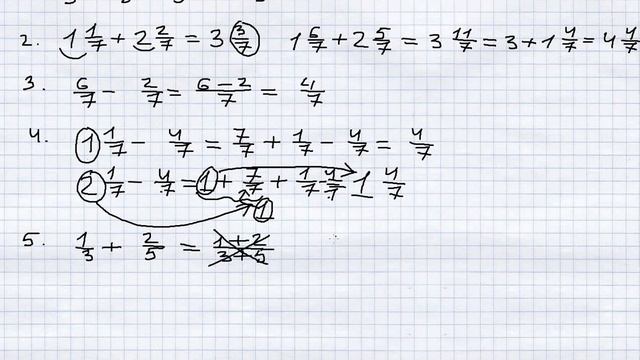 2. 1 1/7 + 2 2/7 = 3 3/7 1 6/7 + 2 5/7 = 3 11/7 = 3 + 1 4/7 = 4 4/7
3. 6/7 - 2/7 = 6-2/7 = 4/7
4. 1 1/7 - 4/7 = 7/7 + 1/7 - 4/7 = 4/7
2 1/7 - 4/7 = 1 + 7/7 + 1/7 - 4/7 = 1 4/7
1
5. 1/3 + 2/5 = 1+2/3+5